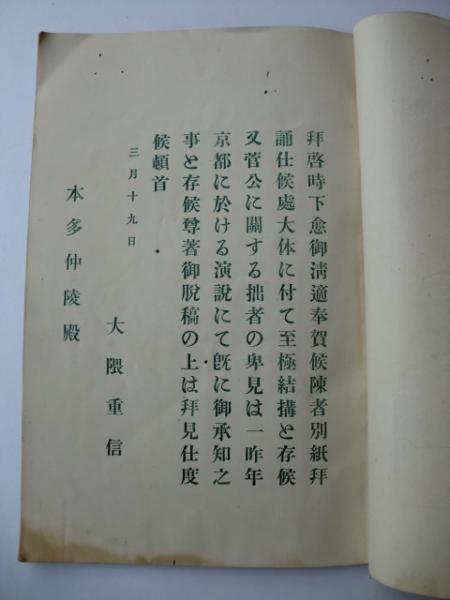 拜啓時下愈御淸適奉賀候陳者別紙拜
誦仕候處大体に付て至極結搆と存候
又菅公に關する拙者の卑見は一昨年
京都に於ける演說にて旣に御承知之
事と存候尊著御脫稿の上は拜見仕度
候頓首
三月十九日
大隈重信
本多仲陵殿